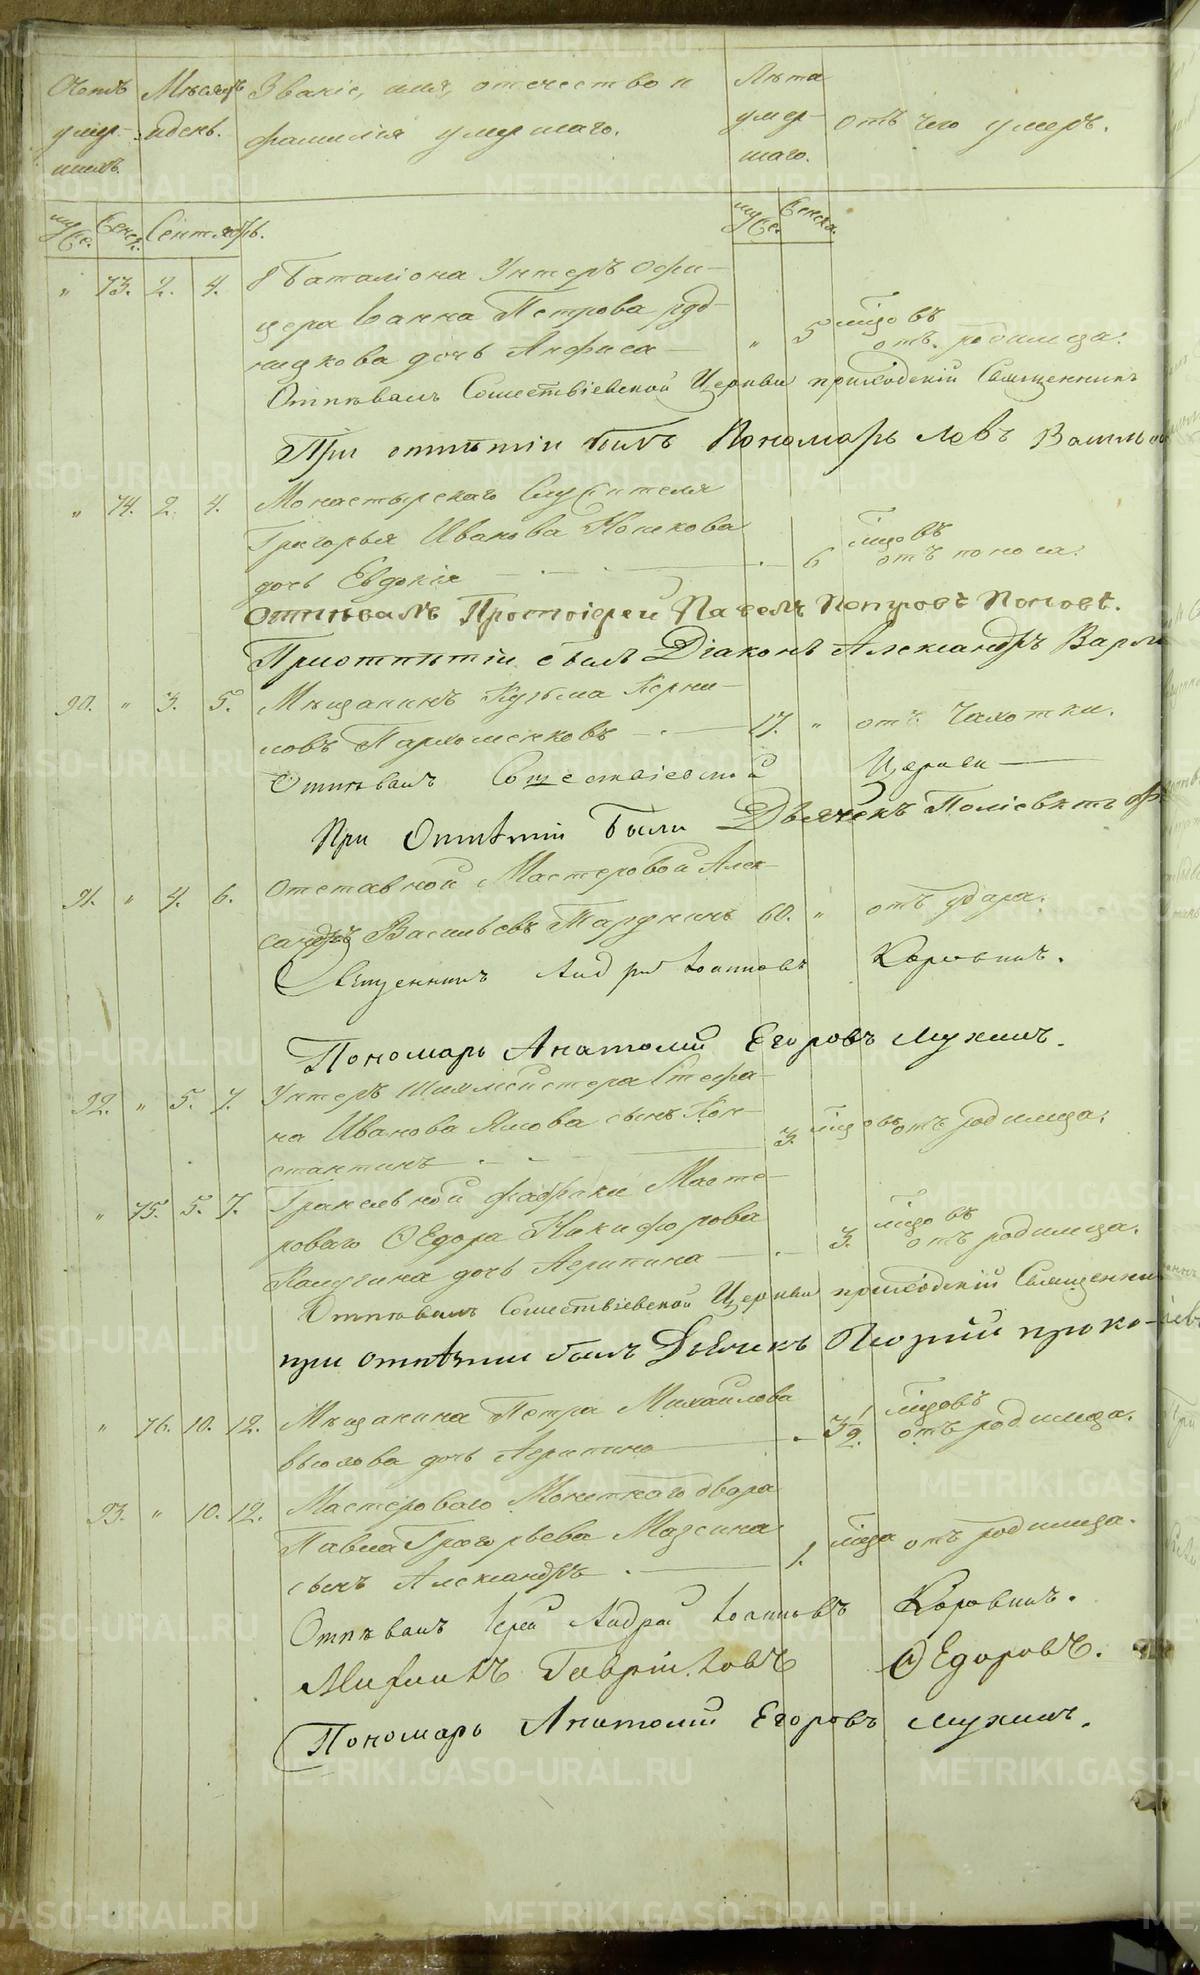 Счетъ Мѣсяцъ Званіе, имя, отечество и Лѣта
умер- и день. фамилія умершаго. умер- отъ чего умеръ.
шихъ. шаго.
муже. женск. Сентябрь. муже. женска.
" 73. 2. 4. 8 Баталіона Унтеръ офи-
цера Іоанна Петрова
дочь Анфиса — " 5 мцовъ отъ родимца.
Отпѣвалъ Сошествіевской Церкви приходскій Священникъ
При отпѣтіи былъ Пономарь Левъ
" 74. 2. 4. Монастырскаго Служителя
Григорья Иванова Копикова
дочь Евдокія — 6 мцовъ отъ поноса.
Отпѣвалъ Протоіерей Павелъ Петровъ Поповъ.
При отпѣтіи былъ Діаконъ Александръ
90. " 3. 5. Мѣщанинъ Кузьма Корни-
ловъ Пархоменковъ — 17. " отъ чахотки.
Отпѣвалъ Сошествіевской Церкви
При Отпѣтіи Были Дьячекъ Поліевктъ
91. " 4. 6. Отставной Мастеровой Алек-
сандръ Васильевъ 60. " отъ удара.
Священникъ Андрей Іоанновъ Коровинъ.
Пономарь Анатолій Егоровъ Мухинъ.
92. " 5. 7. Унтеръ Шихмейстера Стефа-
на Иванова Ялова сынъ Кон-
стантинъ 3. мцовъ отъ родимца.
" 75. 5. 7. Гранильной фабрики Масте-
роваго Ѳедора Никифорова
Калугина дочь Агрипина — 3. мцовъ отъ родимца.
Отпѣвалъ Сошествіевской Церкви приходскій Священникъ
при отпѣтіи былъ Дьячекъ Георгій
" 76. 10. 12. Мѣщанина Петра Михайлова
дочь Агрипина 3½. мцовъ отъ родимца.
93. " 10. 12. Мастероваго Монетнаго двора
Павла Григорьева Мазеина
сынъ Александръ 1. мца отъ родимца.
Отпѣвалъ Іерей Андрей Іоанновъ Коровинъ.
Михаилъ Гавріиловъ Ѳедоровъ.
Пономарь Анатолій Егоровъ Мухинъ.
METRIKI.GASO-URAL.RU